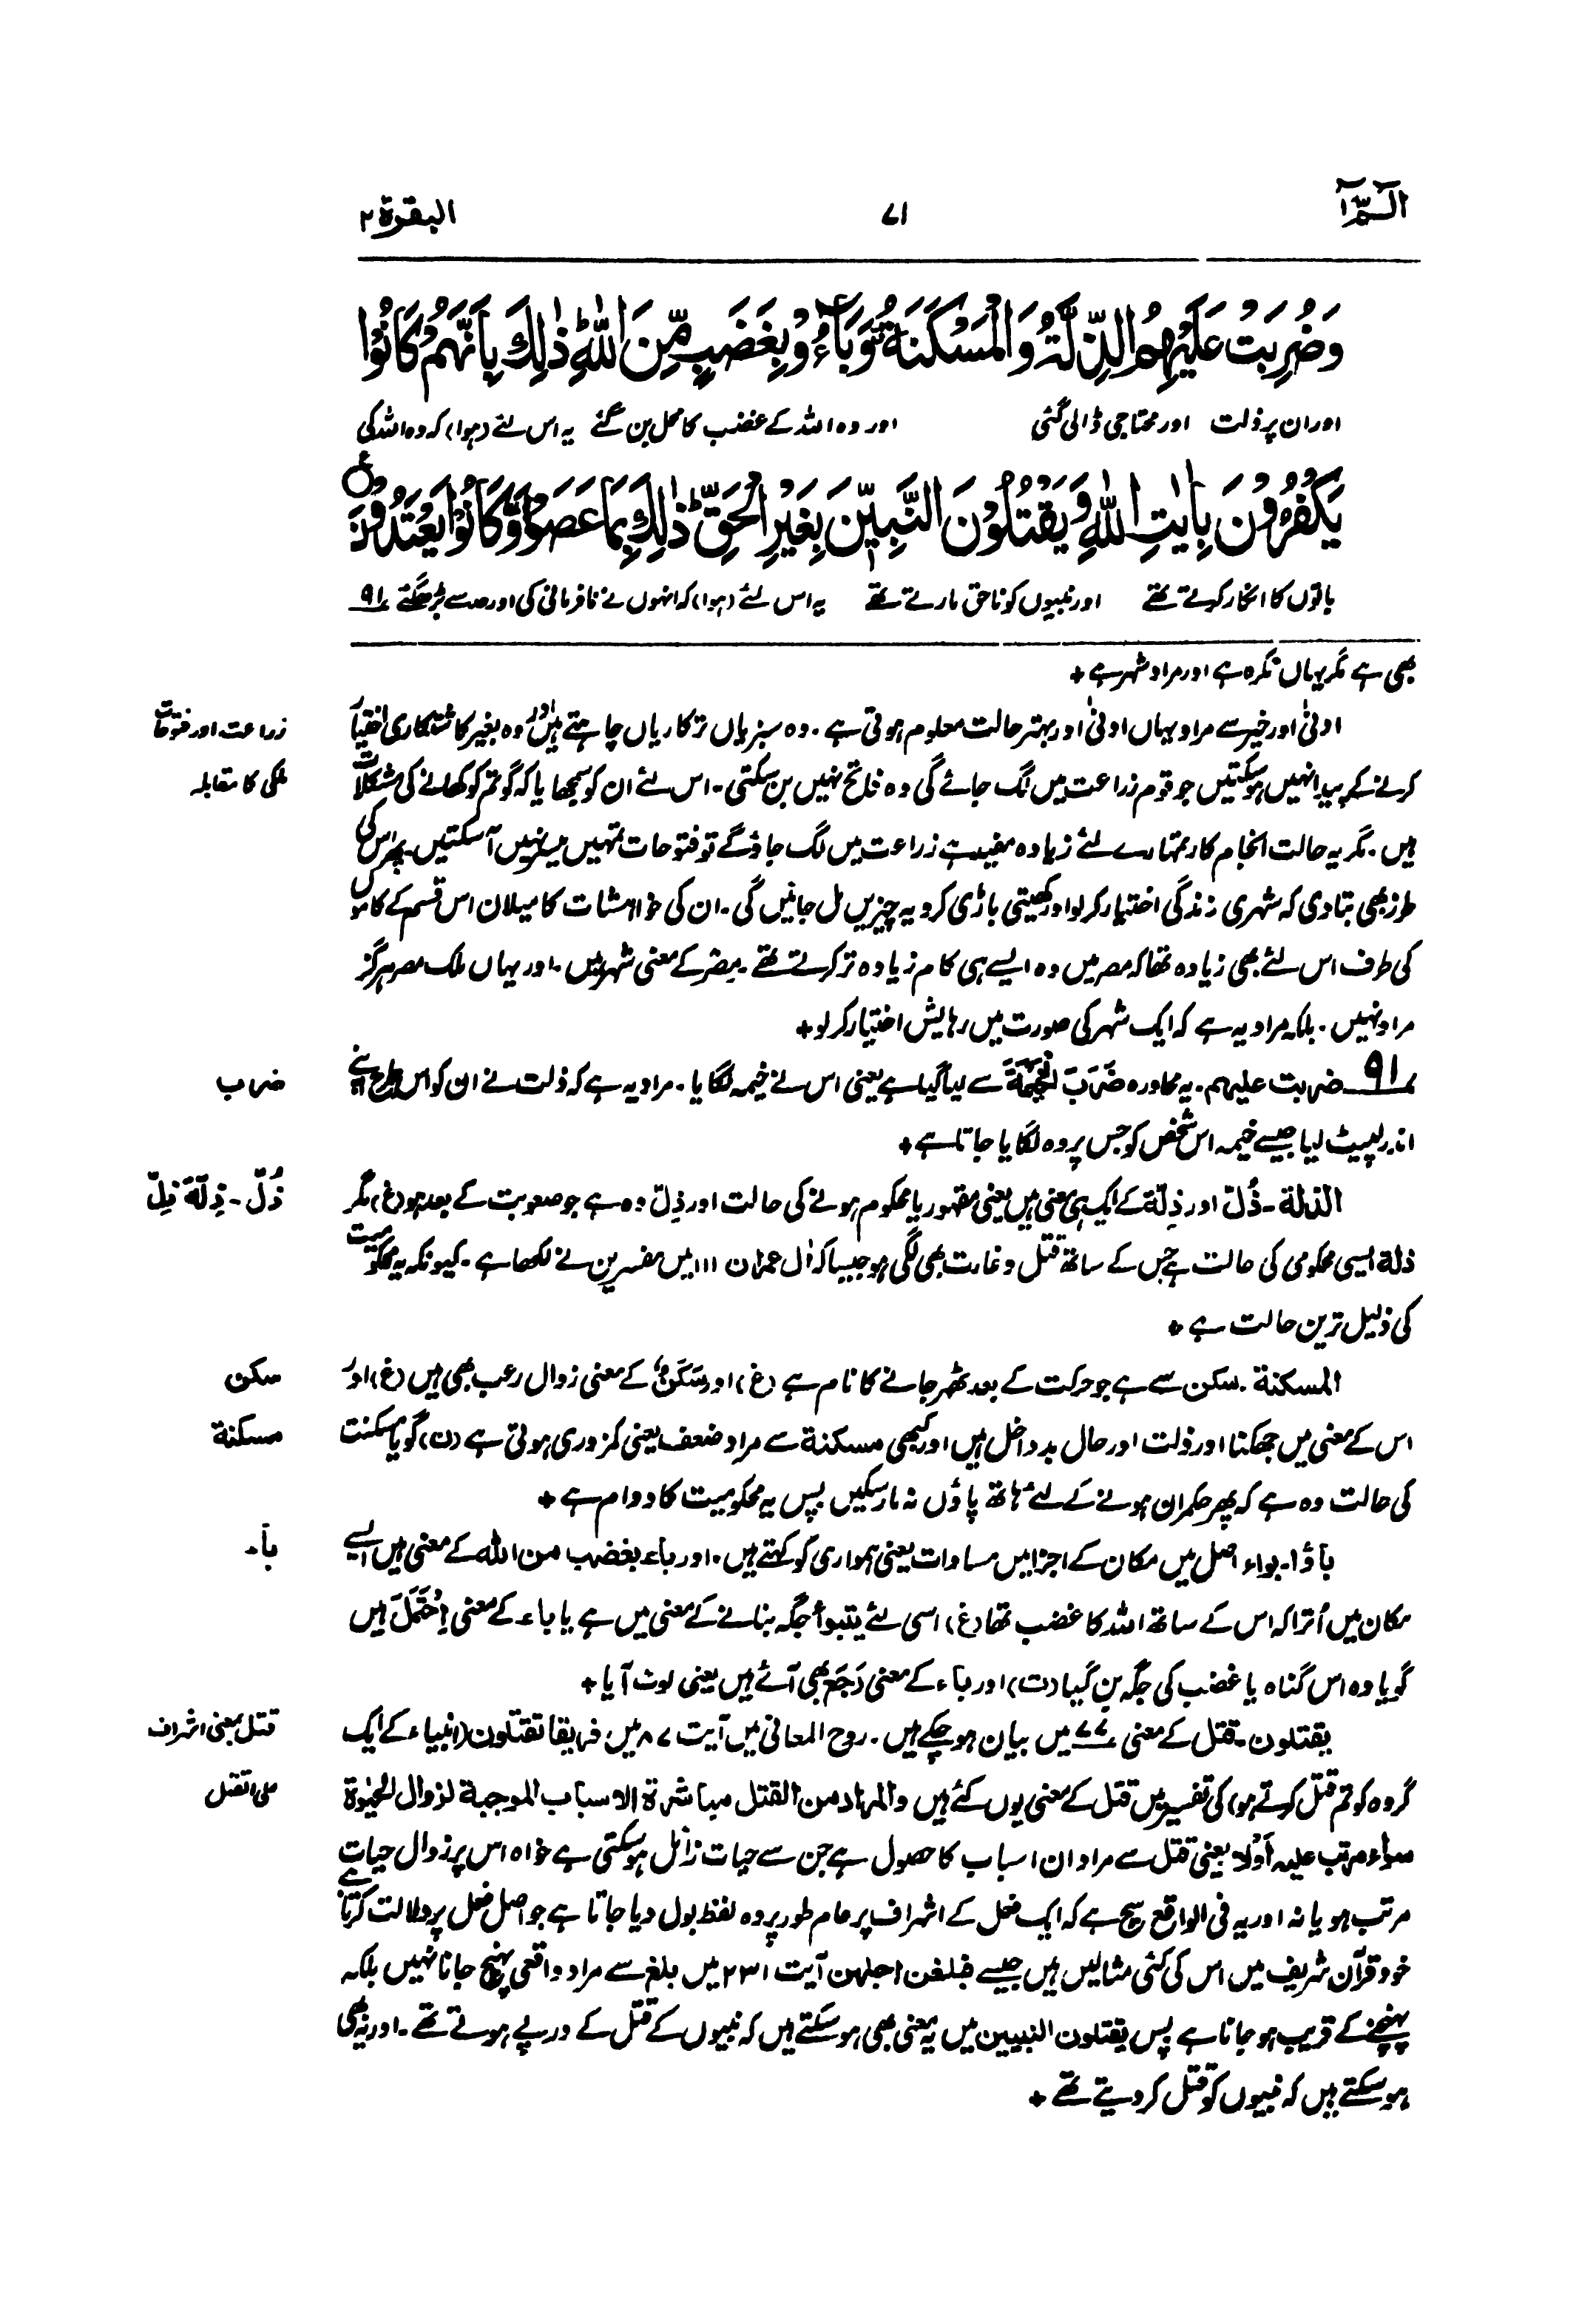 الٓمّٓ ۱
۷۱
البقرة ۲
وَضُرِبَتْ عَلَيْهِمُ الذِّلَّةُ وَالْمَسْكَنَةُ وَبَآءُوْ بِغَضَبٍ مِّنَ اللّٰهِ ذٰلِكَ بِاَنَّهُمْ كَانُوْا
اور ان پر ذلت اور محتاجی ڈالی گئی اور وہ اللہ کے غضب کا محل بن گئے یہ اس لئے (ہوا) کہ وہ اللہ کی
يَكْفُرُوْنَ بِاٰيٰتِ اللّٰهِ وَيَقْتُلُوْنَ النَّبِيّٖنَ بِغَيْرِ الْحَقِّ ذٰلِكَ بِمَا عَصَوْا وَّكَانُوْا يَعْتَدُوْنَ
باتوں کا انکار کرتے تھے اور نبیوں کو ناحق مارتے تھے یہ اس لئے (ہوا) کہ انہوں نے نافرمانی کی اور حد سے بڑھ گئے ۹۱
بھی ہے مگر یہاں نکرہ ہے اور مراد شہر ہے +
ادنیٰ اور خیر سے مراد یہاں ادنیٰ اور بہتر حالت معلوم ہوتی ہے۔ وہ سبزیاں ترکاریاں چاہتے ہیں اور وہ بغیر کاشتکاری اختیار
زراعت اور فتوحات
کرنے کے پیدا نہیں ہوسکتیں جو قوم زراعت میں لگ جائے گی وہ فاتح نہیں بن سکتی۔ اس لئے ان کو سمجھایا کہ گو تم کو کھانے کی مشکلات
ملکی کا مقابلہ
ہیں۔ مگر یہ حالت انجام کار تمہارے لئے زیادہ مفید ہے زراعت میں لگ جاؤ گے تو فتوحات تمہیں میسر نہیں آسکتیں۔ پھر اس کی
طرز بھی بتادی کہ شہری زندگی اختیار کر لو اور کھیتی باڑی کرو یہ چیزیں مل جائیں گی۔ ان کی خواہشات کا میلان اس قسم کے کاموں
کی طرف اس لئے بھی زیادہ تھا کہ مصر میں وہ ایسے ہی کام زیادہ تر کرتے تھے۔ مِصْر کے معنی شہر ہیں۔ اور یہاں ملک مصر ہرگز
مراد نہیں۔ بلکہ مراد یہ ہے کہ ایک شہر کی صورت میں رہایش اختیار کر لو +
۹۱ ضربت علیہم۔ یہ محاورہ ضَرَبَ الْخَيْمَةَ سے لیا گیا ہے یعنی اس نے خیمہ لگایا۔ مراد یہ ہے کہ ذلت نے ان کو اس طرح اپنے
ضراب
اندر لپیٹ لیا جیسے خیمہ اس شخص کو جس پر وہ لگایا جاتا ہے +
الذلة۔ ذُلّ اور ذِلّة کے ایک ہی معنی ہیں یعنی مقہور یا محکوم ہونے کی حالت اور ذِلّ وہ ہے جو صعوبت کے بعد ہو (غ) مگر
ذُلّ۔ ذِلّة ذِلّ
ذلة ایسی محکومی کی حالت ہے جس کے ساتھ قتل و غارت بھی لگی ہو جیسا کہ اٰل عمران ۱۱۱ میں مفسرین نے لکھا ہے۔ کیونکہ یہ محکومیت
کی ذلیل ترین حالت ہے +
المسکنة۔ سکن سے ہے جو حرکت کے بعد ٹھہر جانے کا نام ہے (غ) اور سَکَنٌ کے معنی زوال رعب بھی ہیں (غ) اور
سکن
اس کے معنی میں جھکنا اور ذلت اور حال بد داخل ہیں اور کبھی مسکنة سے مراد ضعف یعنی کمزوری ہوتی ہے (ن) گویا مسکنت
مسکنة
کی حالت وہ ہے کہ پھر حکمران ہونے کے لئے ہاتھ پاؤں نہ مار سکیں پس یہ محکومیت کا دوام ہے +
باؤا۔ بواء اصل میں مکان کے اجزا میں مساوات یعنی ہمواری کو کہتے ہیں۔ اور باء بغضب من اللہ کے معنی ہیں ایسے
بآء
مکان میں اُترا کہ اس کے ساتھ اللہ کا غضب تھا (غ) اسی لئے یتبوأ جگہ بنانے کے معنی میں ہے یا باء کے معنی اِحْتَمَلَ ہیں
گویا وہ اس گناہ یا غضب کی جگہ بن گیا (ت) اور باء کے معنی رَجَعَ بھی آئے ہیں یعنی لوٹ آیا +
یقتلون۔ قتل کے معنی ۷۷ میں بیان ہوچکے ہیں۔ روح المعانی میں آیت ۸۷ میں فریقا تقتلون (انبیاء کے ایک
قتل بمعنی اشراف
گروہ کو تم قتل کرتے ہو) کی تفسیر میں قتل کے معنی یوں کئے ہیں والمراد من القتل مباشرة الاسباب الموجبة لزوال الحیوة
علی القتل
سواء مرتب علیہ اَوْلا یعنی قتل سے مراد ان اسباب کا حصول ہے جن سے حیات زائل ہوسکتی ہے خواہ اس پر زوال حیات
مرتب ہو یا نہ اور یہ فی الواقع سچ ہے کہ ایک فعل کے اشراف پر عام طور پر وہ لفظ بول دیا جاتا ہے جو اصل فعل پر دلالت کرتا ہے
خود قرآن شریف میں اس کی کئی مثالیں ہیں جیسے فبلغن اجلہن آیت ۲۳۱ میں بلغ سے مراد واقعی پہنچ جانا نہیں بلکہ
پہنچنے کے قریب ہوجانا ہے پس یقتلون النبیین میں یہ معنی بھی ہوسکتے ہیں کہ نبیوں کے قتل کے درپے ہوتے تھے۔ اور یہ بھی
ہوسکتے ہیں کہ نبیوں کو قتل کر دیتے تھے +